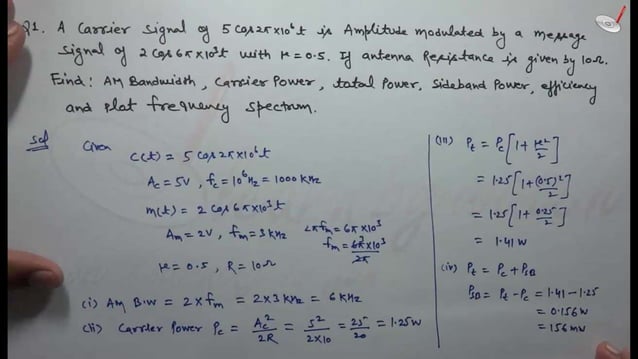 Q1. A Carrier signal of 5 cos 2π×10⁶t is Amplitude modulated by a message
signal of 2 cos 6π×10³t with μ = 0.5. If antenna Resistance is given by 10Ω.
Find: AM Bandwidth, Carrier Power, total Power, Sideband Power, efficiency
and plot frequency spectrum.
Sol Given
C(t) = 5 cos 2π×10⁶t
Ac = 5V, fc = 10⁶ Hz = 1000 KHz
m(t) = 2 cos 6π×10³t
Am = 2V, fm = 3 KHz 2πfm = 6π×10³
fm = 6π×10³/2π
μ = 0.5, R = 10Ω
(i) AM B.W = 2×fm = 2×3 KHz = 6 KHz
(ii) Carrier Power Pc = Ac²/2R = 5²/2×10 = 25/20 = 1.25W
(iii) Pt = Pc[1 + μ²/2]
= 1.25[1 + (0.5)²/2]
= 1.25[1 + 0.25/2]
= 1.41 W
(iv) Pt = Pc + PSB
PSB = Pt - Pc = 1.41 - 1.25
= 0.156W
= 156 mW